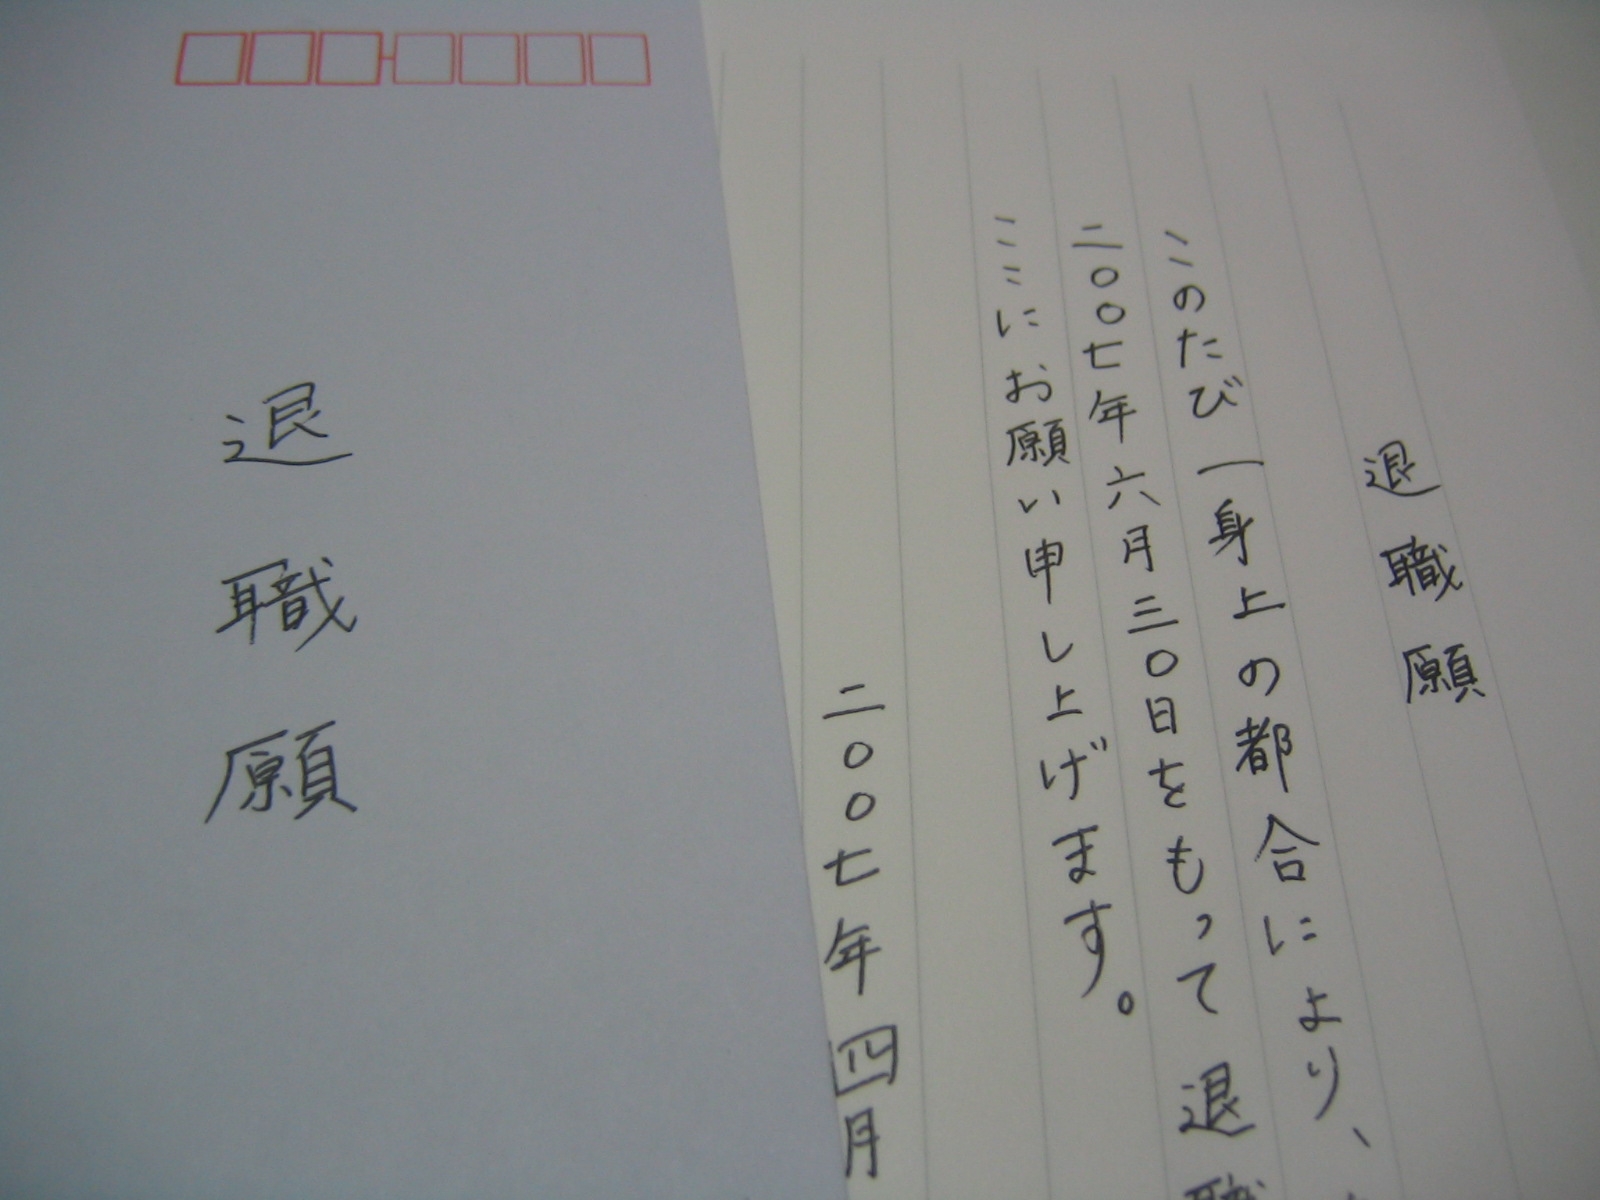 退職願
このたび一身上の都合により、
二〇〇七年六月三〇日をもって退職
ここにお願い申し上げます。
二〇〇七年四月
退職願